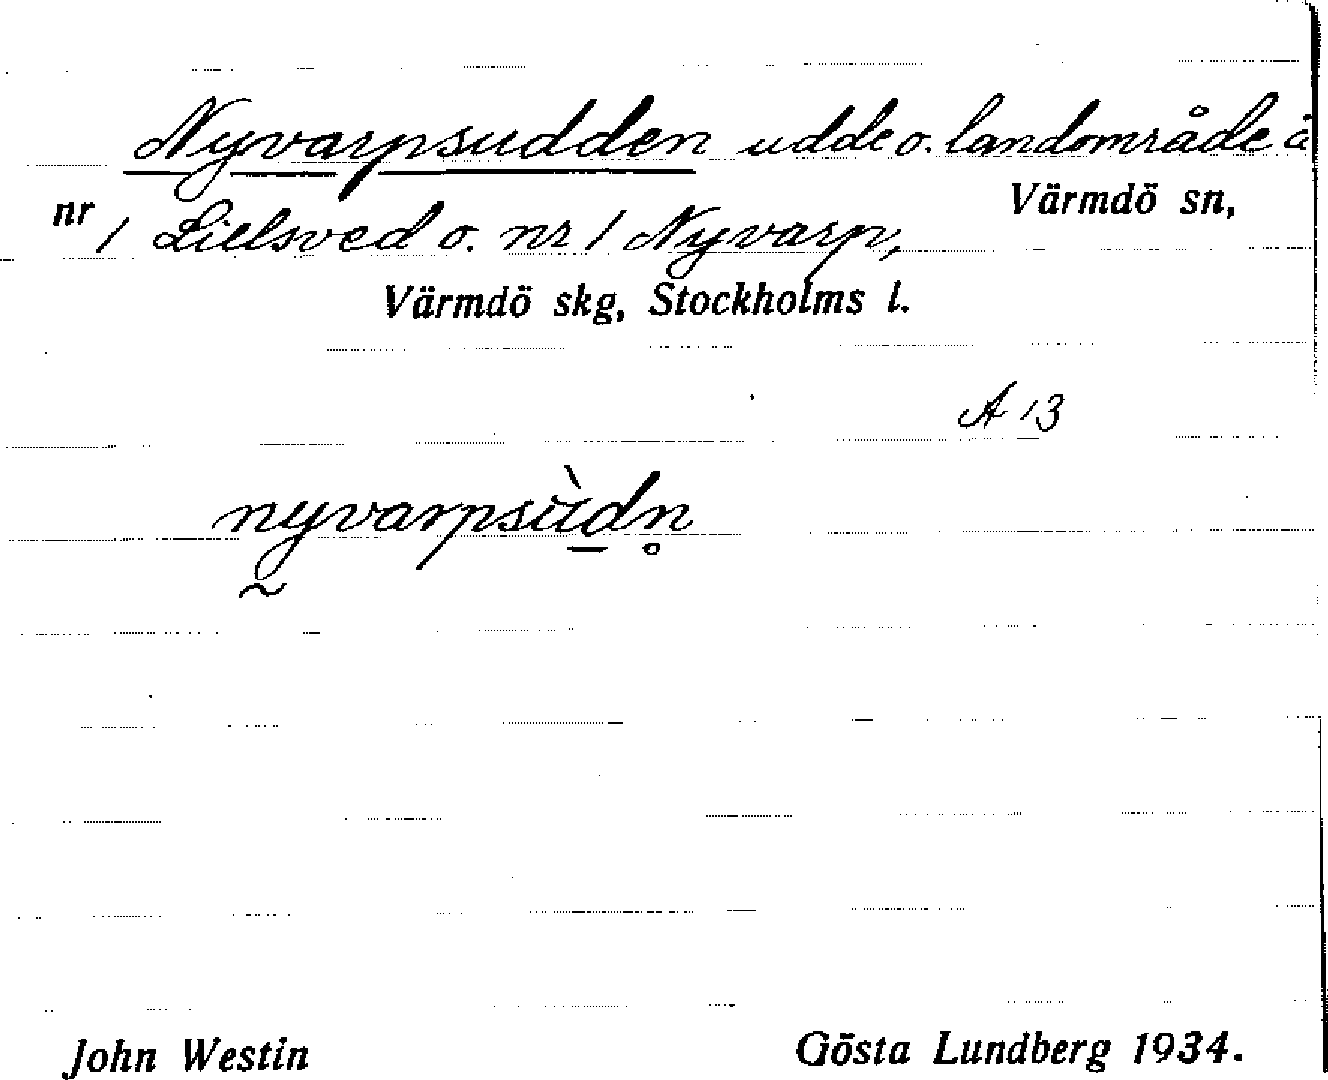 Nyvarpsudden udde o. landområde å
Värmdö sn,
nr 1 Lillsved o. nr 1 Nyvarp,
Värmdö skg, Stockholms l.
A 13
nyvarpsùdn̥
John Westin Gösta Lundberg 1934.